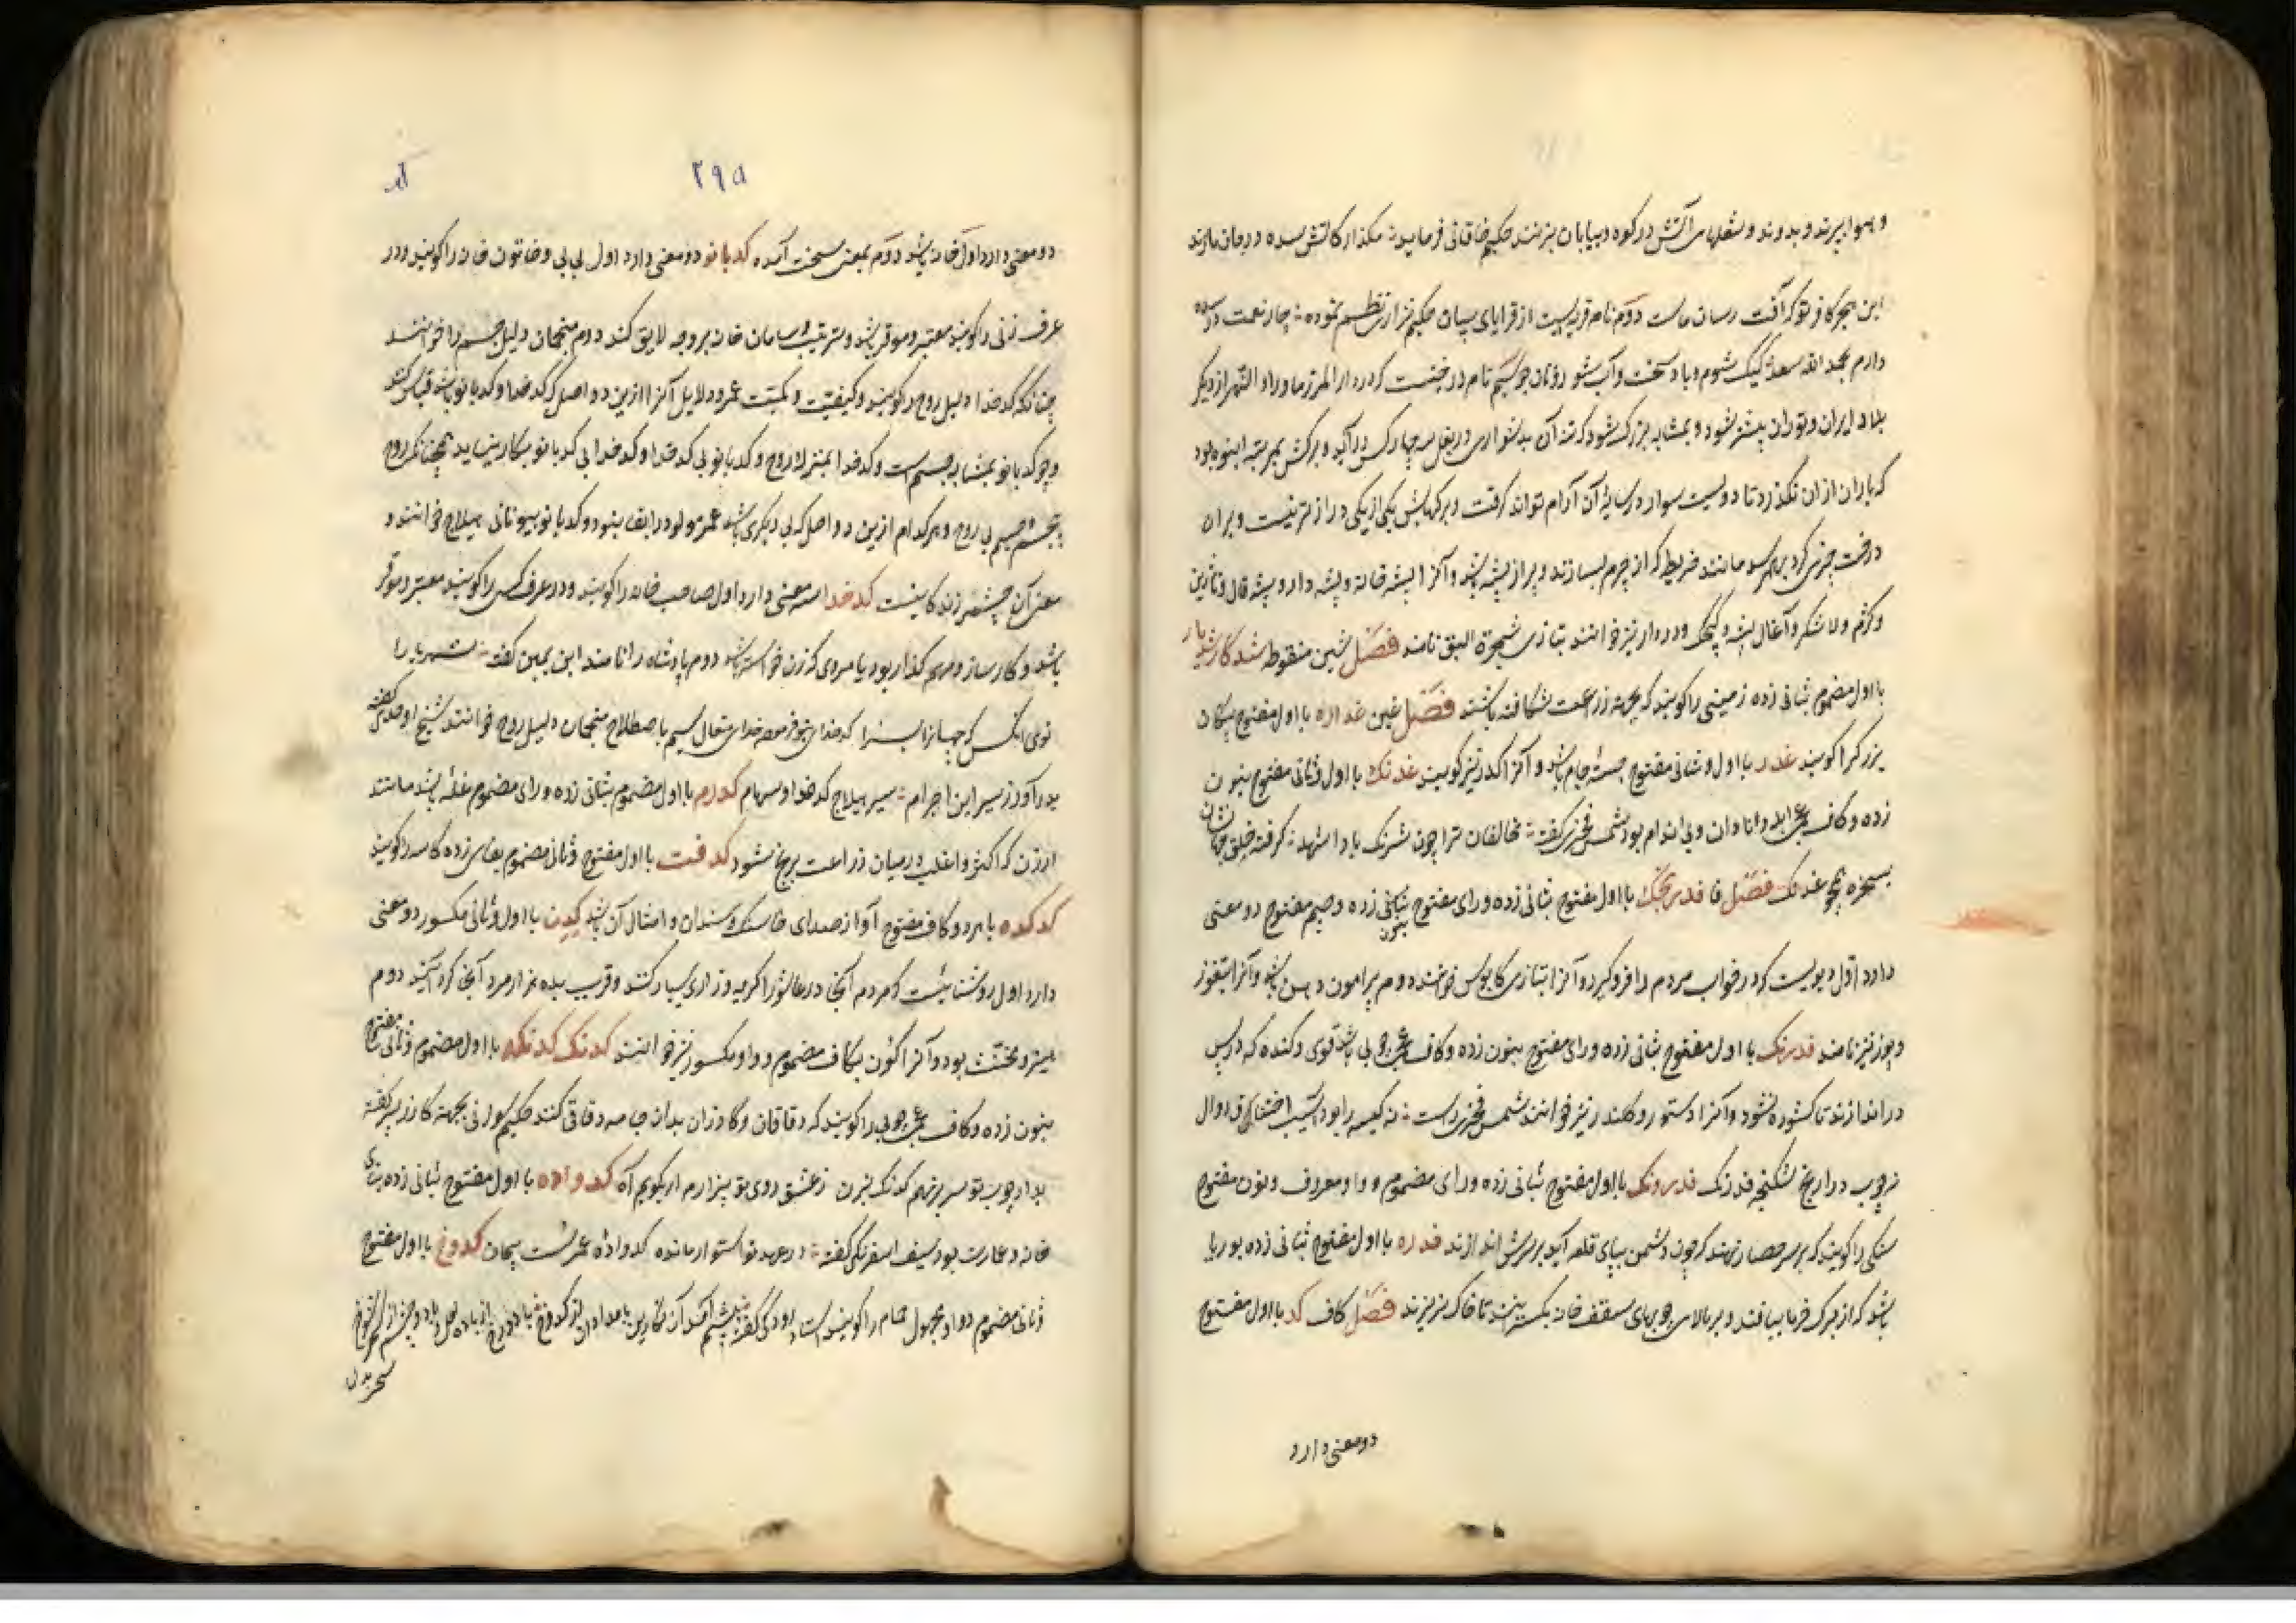 و بهوا بپرند و بدوند و شعلهای آتش در کوه و بیابان بزنند حکیم خاقانی فرماید مگذار کاتش سده در جان ما زند
این هجر کافر تو که آفت رسان ماست دوم نام قریه‌ایست از قرایای سپاهان حکیم نزاری نظم نموده چار نعمت در سده
دارم بحمد الله سعد
بلاد ایران و توران بیشتر شود و بمثابه بزرگ شود که تنه آن بدشواری در بغل سه چهار کس درآید و برگش بمرتبه انبوه بود
که باران از آن نگذرد تا دویست سوار در سایهٔ آن آرام تواند گرفت و برگهایش یکی از یکی درازتر نیست و بر آن
درخت چیزی گرد بهم رسد مانند خریطه که از چرم بسازند و پر از پشه باشد و آنرا پشه خانه و پشه دار و پشه غال و نارون
و کژم و لاشکر و آغال پشه و کنجک و دردار نیز خوانند بتازی شجرة البق نامند فصل شین منقوطه شدکار شدیار
با اول مضموم بثانی زده زمینی را گویند که بجهت زراعت شکافته باشند فصل غین غداره با اول مفتوح پیکان
بزرگ را گویند غدر با اول و ثانی مفتوح جبهٔ جامه باشد و آنرا کدر نیز گویند غدنک با اول و ثانی مفتوح بنون
زده و کاف عجمی ابله و نادان و بی اندام بود شمس فخری گفته مخالفان ترا چون شرنگ باد اشهد گرفته خلق جهانشان
بسخره همچو غدنک فصل فا فدرنجک با اول مفتوح بثانی زده و رای مفتوح بنون زده و جیم مفتوح دو معنی
دارد اول دیویست که در خواب مردم را فرو گیرد و آنرا بتازی کابوس خوانند دوم پیرامون دهن باشد و آنرا بتفوز
و پوز نیز نامند فدرنک با اول مفتوح بثانی زده و رای مفتوح بنون زده و کاف عجمی چوبی باشد قوی و کنده که در پس
در اندازند تا کشوده نشود و آنرا دستور و کلندر نیز خوانند شمس فخری راست نه کیسه را بود آسیب اختناق دوال
نه چوب در را رنج شکنجه فدرنک فدرونک با اول مفتوح بثانی زده و رای مضموم و واو معروف و نون مفتوح
سنگی را گویند که بر سر حصار نهند که چون دشمن بپای قلعه آید بر سرش اندازند فدره با اول مفتوح بثانی زده بوریا
باشد که از برگ خرما ببافند و بر بالای چوبهای سقف خانه بگسترانند تا خاک نریزد فصل کاف کد با اول مفتوح
دو معنی دارد
۲۹۵
دو معنی دارد اول خانه باشد دوم بمعنی سخت آمده کدبانو دو معنی دارد اول بی بی و خاتون خانه را گویند و در
عرف زنی را گویند معتبر و موقر باشد و ترتیب سامان خانه بر وجه لایق کند دوم منجمان دلیل جسم را خوانند
چنانکه کدخدا دلیل روح را گویند و کیفیت و کمیت عمر و دلایل آنرا ازین دو اصل که کدخدا و کدبانو باشد قیاس کنند
و چو کدبانو بمثابه جسم است و کدخدا بمنزله روح و کدبانو بی کدخدا و کدخدا بی کدبانو بکار نیاید همچنانکه روح
بی جسم و جسم بی روح و هر کدام ازین دو اصل که بی دیگری باشد عمر مولود را بقا نبود و کدبانو بیونانی هیلاج خوانند و
معنی آن چشمه زندگانیست کدخدا سه معنی دارد اول صاحب خانه را گویند و در عرف کسی را گویند معتبر و موقر
باشد و کارساز و مهم گذار بود یا مردی که زن خواسته باشد دوم پادشاه را نامند ابن یمین گفته شهریارا
توی آنکس که جهانرا بسزا کدخدای بتوفر خدای متعال سیم باصطلاح منجمان دلیل روح خوانند شیخ اوحدی گفته
بدر آورد ز سیر این اجرام سیر هیلاج کدخدا و سهام کدرم با اول مضموم بثانی زده و رای مضموم غله باشد مانند
ارزن که اکثر و اغلب در میان زراعت برنج شود کدفت با اول مفتوح و ثانی مضموم بفای زده کاسه را گویند
کدکده با هر دو کاف مفتوح آواز صدای خایسک و سندان و امثال آن باشد کدن با اول و ثانی مکسور دو معنی
دارد اول روشنائیست که مردم آنجا در عاشورا گریه و زاری بسیار کنند و قریب بده هزار مرد آنجا گرد آیند دوم
هیز و مخنث بود و آنرا کون بکاف مضموم و واو مکسور نیز خوانند کدنک کدنکه با اول مضموم و ثانی مفتوح
بنون زده و کاف عجمی چوبی را گویند که دقاقان و گازران بدان جامه دقاقی کنند حکیم سوزنی بجهت گازر پسر گفته
بردار چوب تو سر بنهم کدنک بزن ز عشق روی تو بیزارم ار بگویم آه کدواده با اول مفتوح بثانی زده بنای
خانه و عمارت بود سیف اسفرنگی گفته در عهد تو استوار مانده کدواده عمر سست پیمان کدوخ با اول مفتوح
و ثانی مضموم و واو مجهول حمام را گویند استاد رودکی گفته پیشم آمد بامدادان آن نگارین از کدوخ با دو رخ از باده لعل و با دو چشم از سحر شوخ